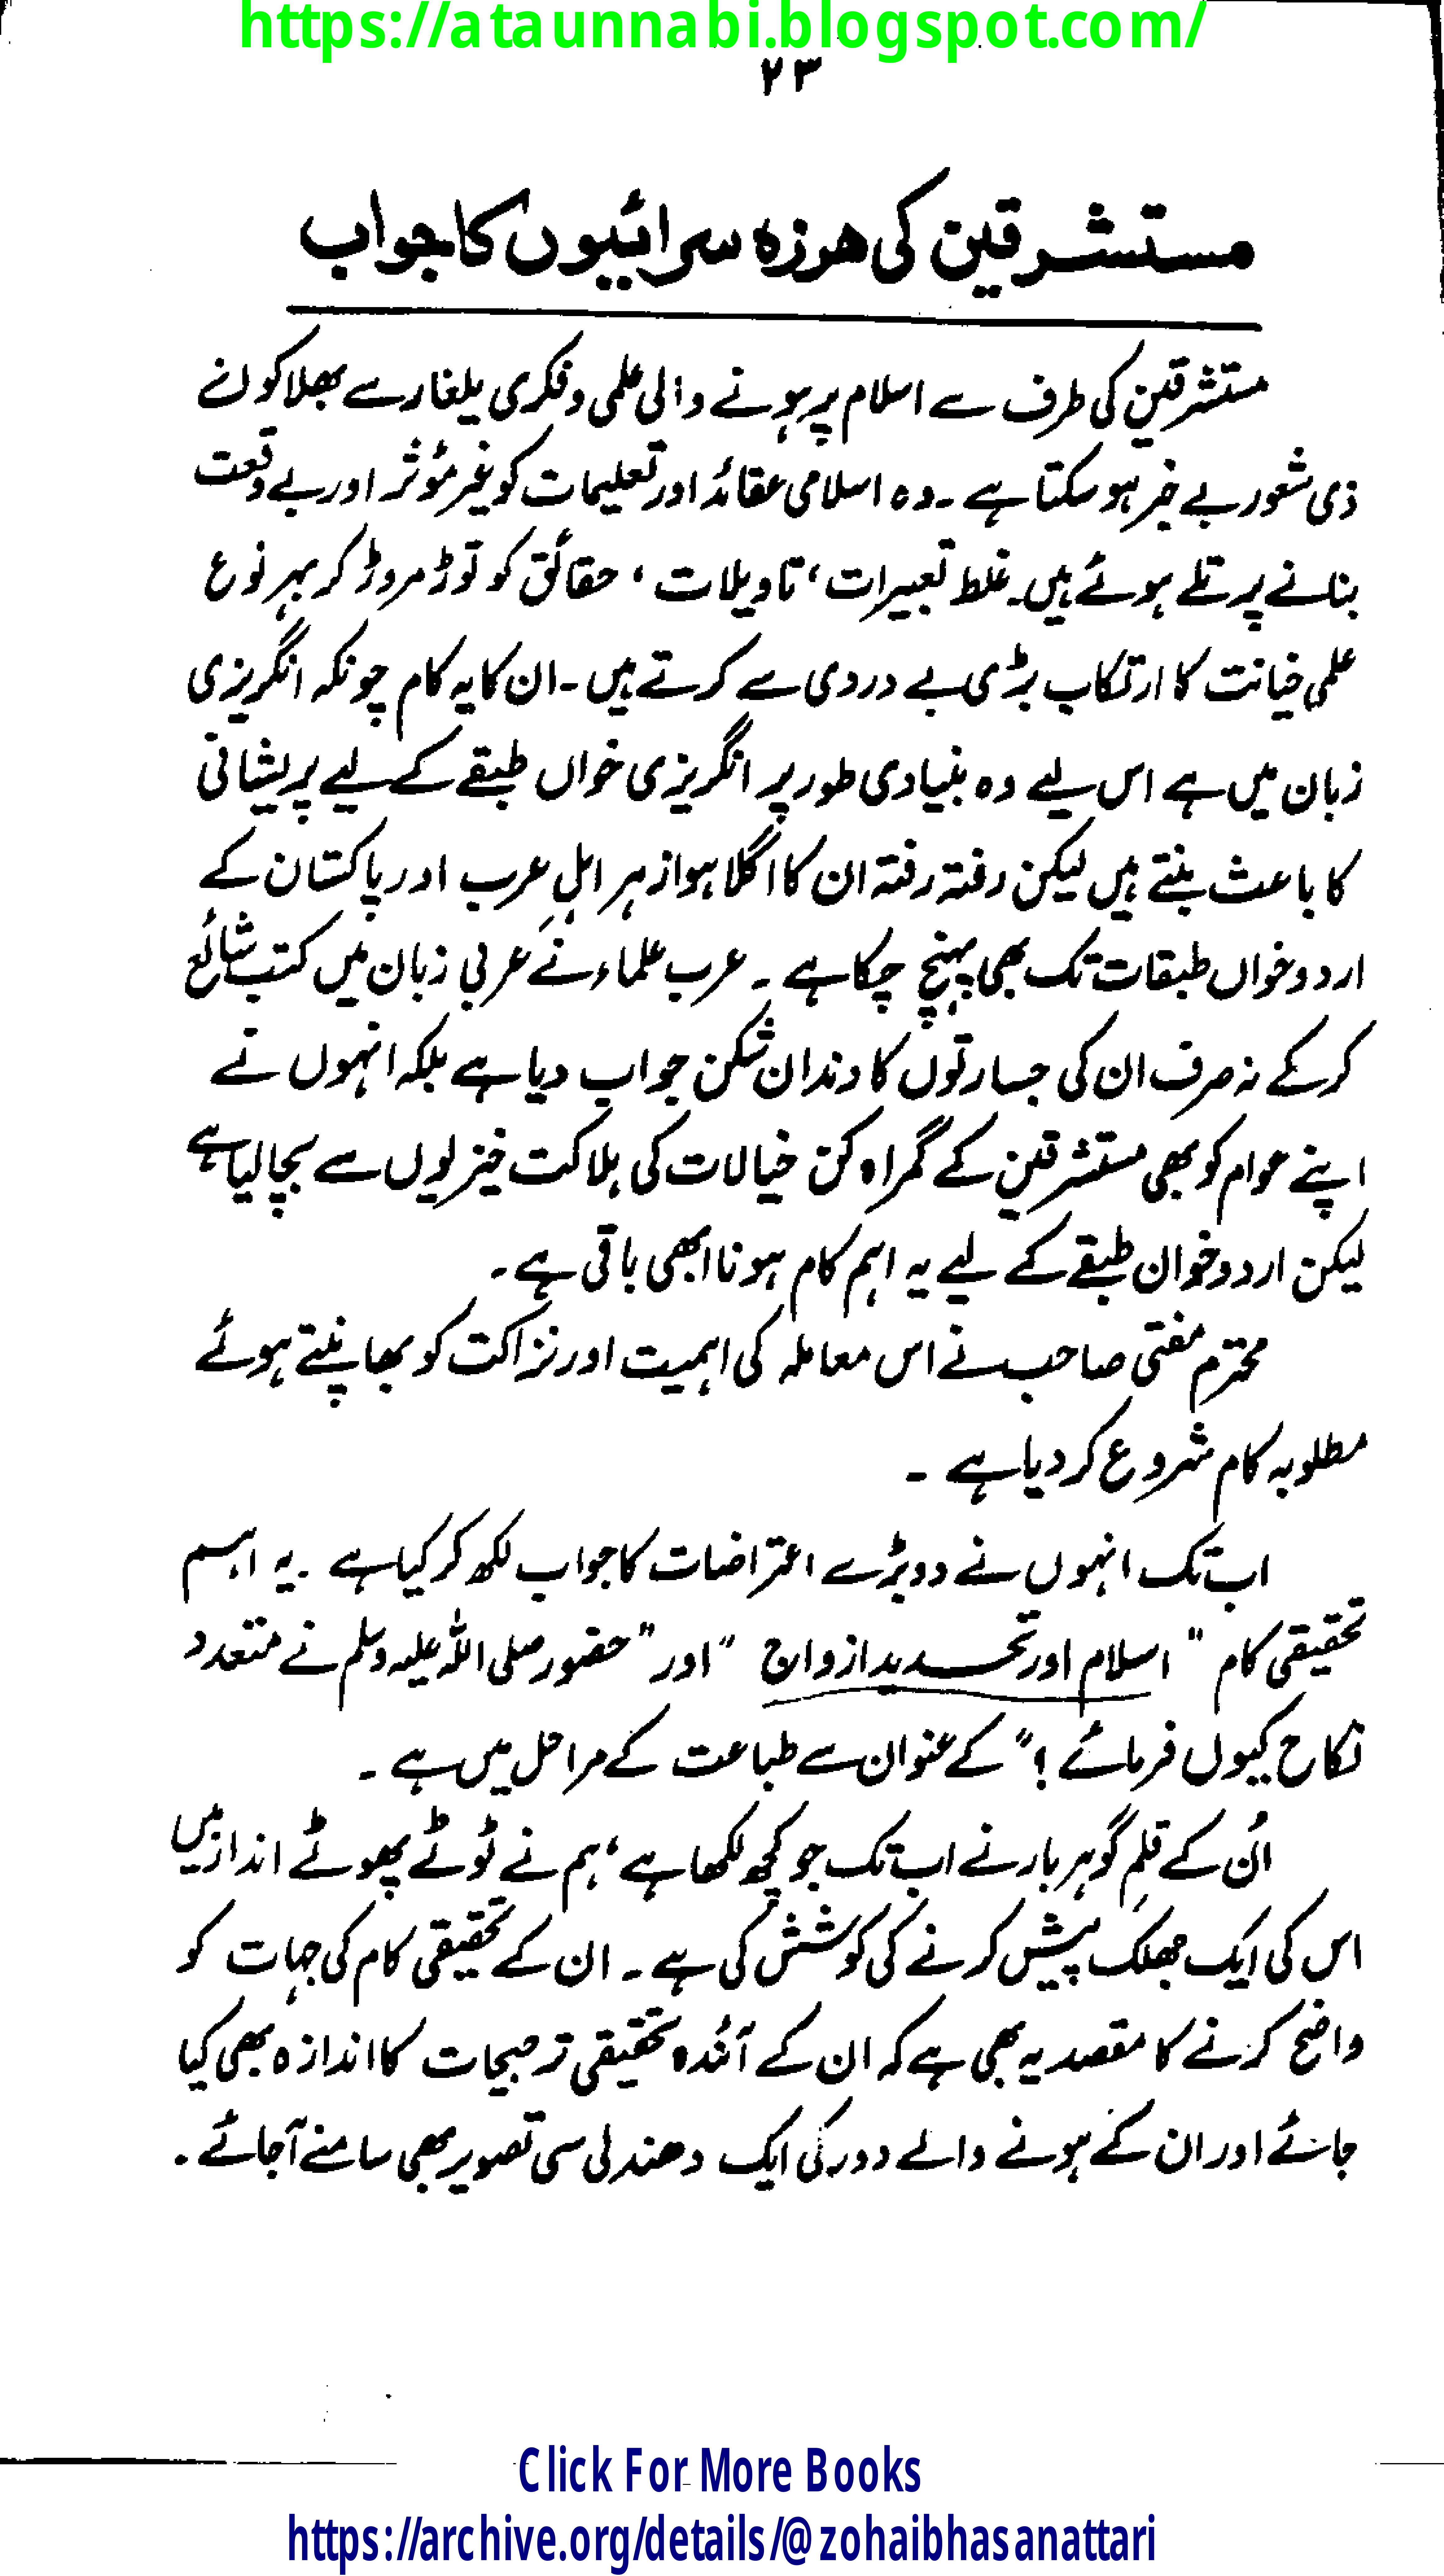 https://ataunnabi.blogspot.com/
۲۳
مستشرقین کی ہرزہ سرائیوں کا جواب
مستشرقین کی طرف سے اسلام پر ہونے والی علمی و فکری یلغار سے بھلا کون
ذی شعور بے خبر ہو سکتا ہے ۔ وہ اسلامی عقائد اور تعلیمات کو غیر مؤثر اور بے وقعت
بنانے پر تلے ہوئے ہیں۔ غلط تعبیرات ، تاویلات ، حقائق کو توڑ مروڑ کر بہر نوع
علمی خیانت کا ارتکاب بڑی بے دردی سے کرتے ہیں ۔ ان کا یہ کام چونکہ انگریزی
زبان میں ہے اس لیے وہ بنیادی طور پر انگریزی خواں طبقے کے لیے پریشانی
کا باعث بنتے ہیں لیکن رفتہ رفتہ ان کا اگلا ہوا زہر اہلِ عرب اور پاکستان کے
اردو خواں طبقات تک بھی پہنچ چکا ہے ۔ عرب علماء نے عربی زبان میں کتب شائع
کر کے نہ صرف ان کی جسارتوں کا دندان شکن جواب دیا ہے بلکہ انہوں نے
اپنے عوام کو بھی مستشرقین کے گمراہ کن خیالات کی ہلاکت خیزیوں سے بچا لیا ہے
لیکن اردو خوان طبقے کے لیے یہ اہم کام ہونا ابھی باقی ہے ۔
محترم مفتی صاحب نے اس معاملہ کی اہمیت اور نزاکت کو بھانپتے ہوئے
مطلوبہ کام شروع کر دیا ہے ۔
اب تک انہوں نے دو بڑے اعتراضات کا جواب لکھ کر کیا ہے ۔ یہ اہم
تحقیقی کام " اسلام اور تحدید ازواج " اور " حضور صلی اللہ علیہ وسلم نے متعدد
نکاح کیوں فرمائے ؟" کے عنوان سے طباعت کے مراحل میں ہے ۔
اُن کے قلمِ گوہر بار نے اب تک جو کچھ لکھا ہے ، ہم نے ٹوٹے پھوٹے انداز میں
اس کی ایک جھلک پیش کرنے کی کوشش کی ہے ۔ ان کے تحقیقی کام کی جہات کو
واضح کرنے کا مقصد یہ بھی ہے کہ ان کے آئندہ تحقیقی ترجیحات کا اندازہ بھی کیا
جائے اور ان کے ہونے والے دور کی ایک دھندلی سی تصویر بھی سامنے آ جائے ۔
Click For More Books
https://archive.org/details/@zohaibhasanattari